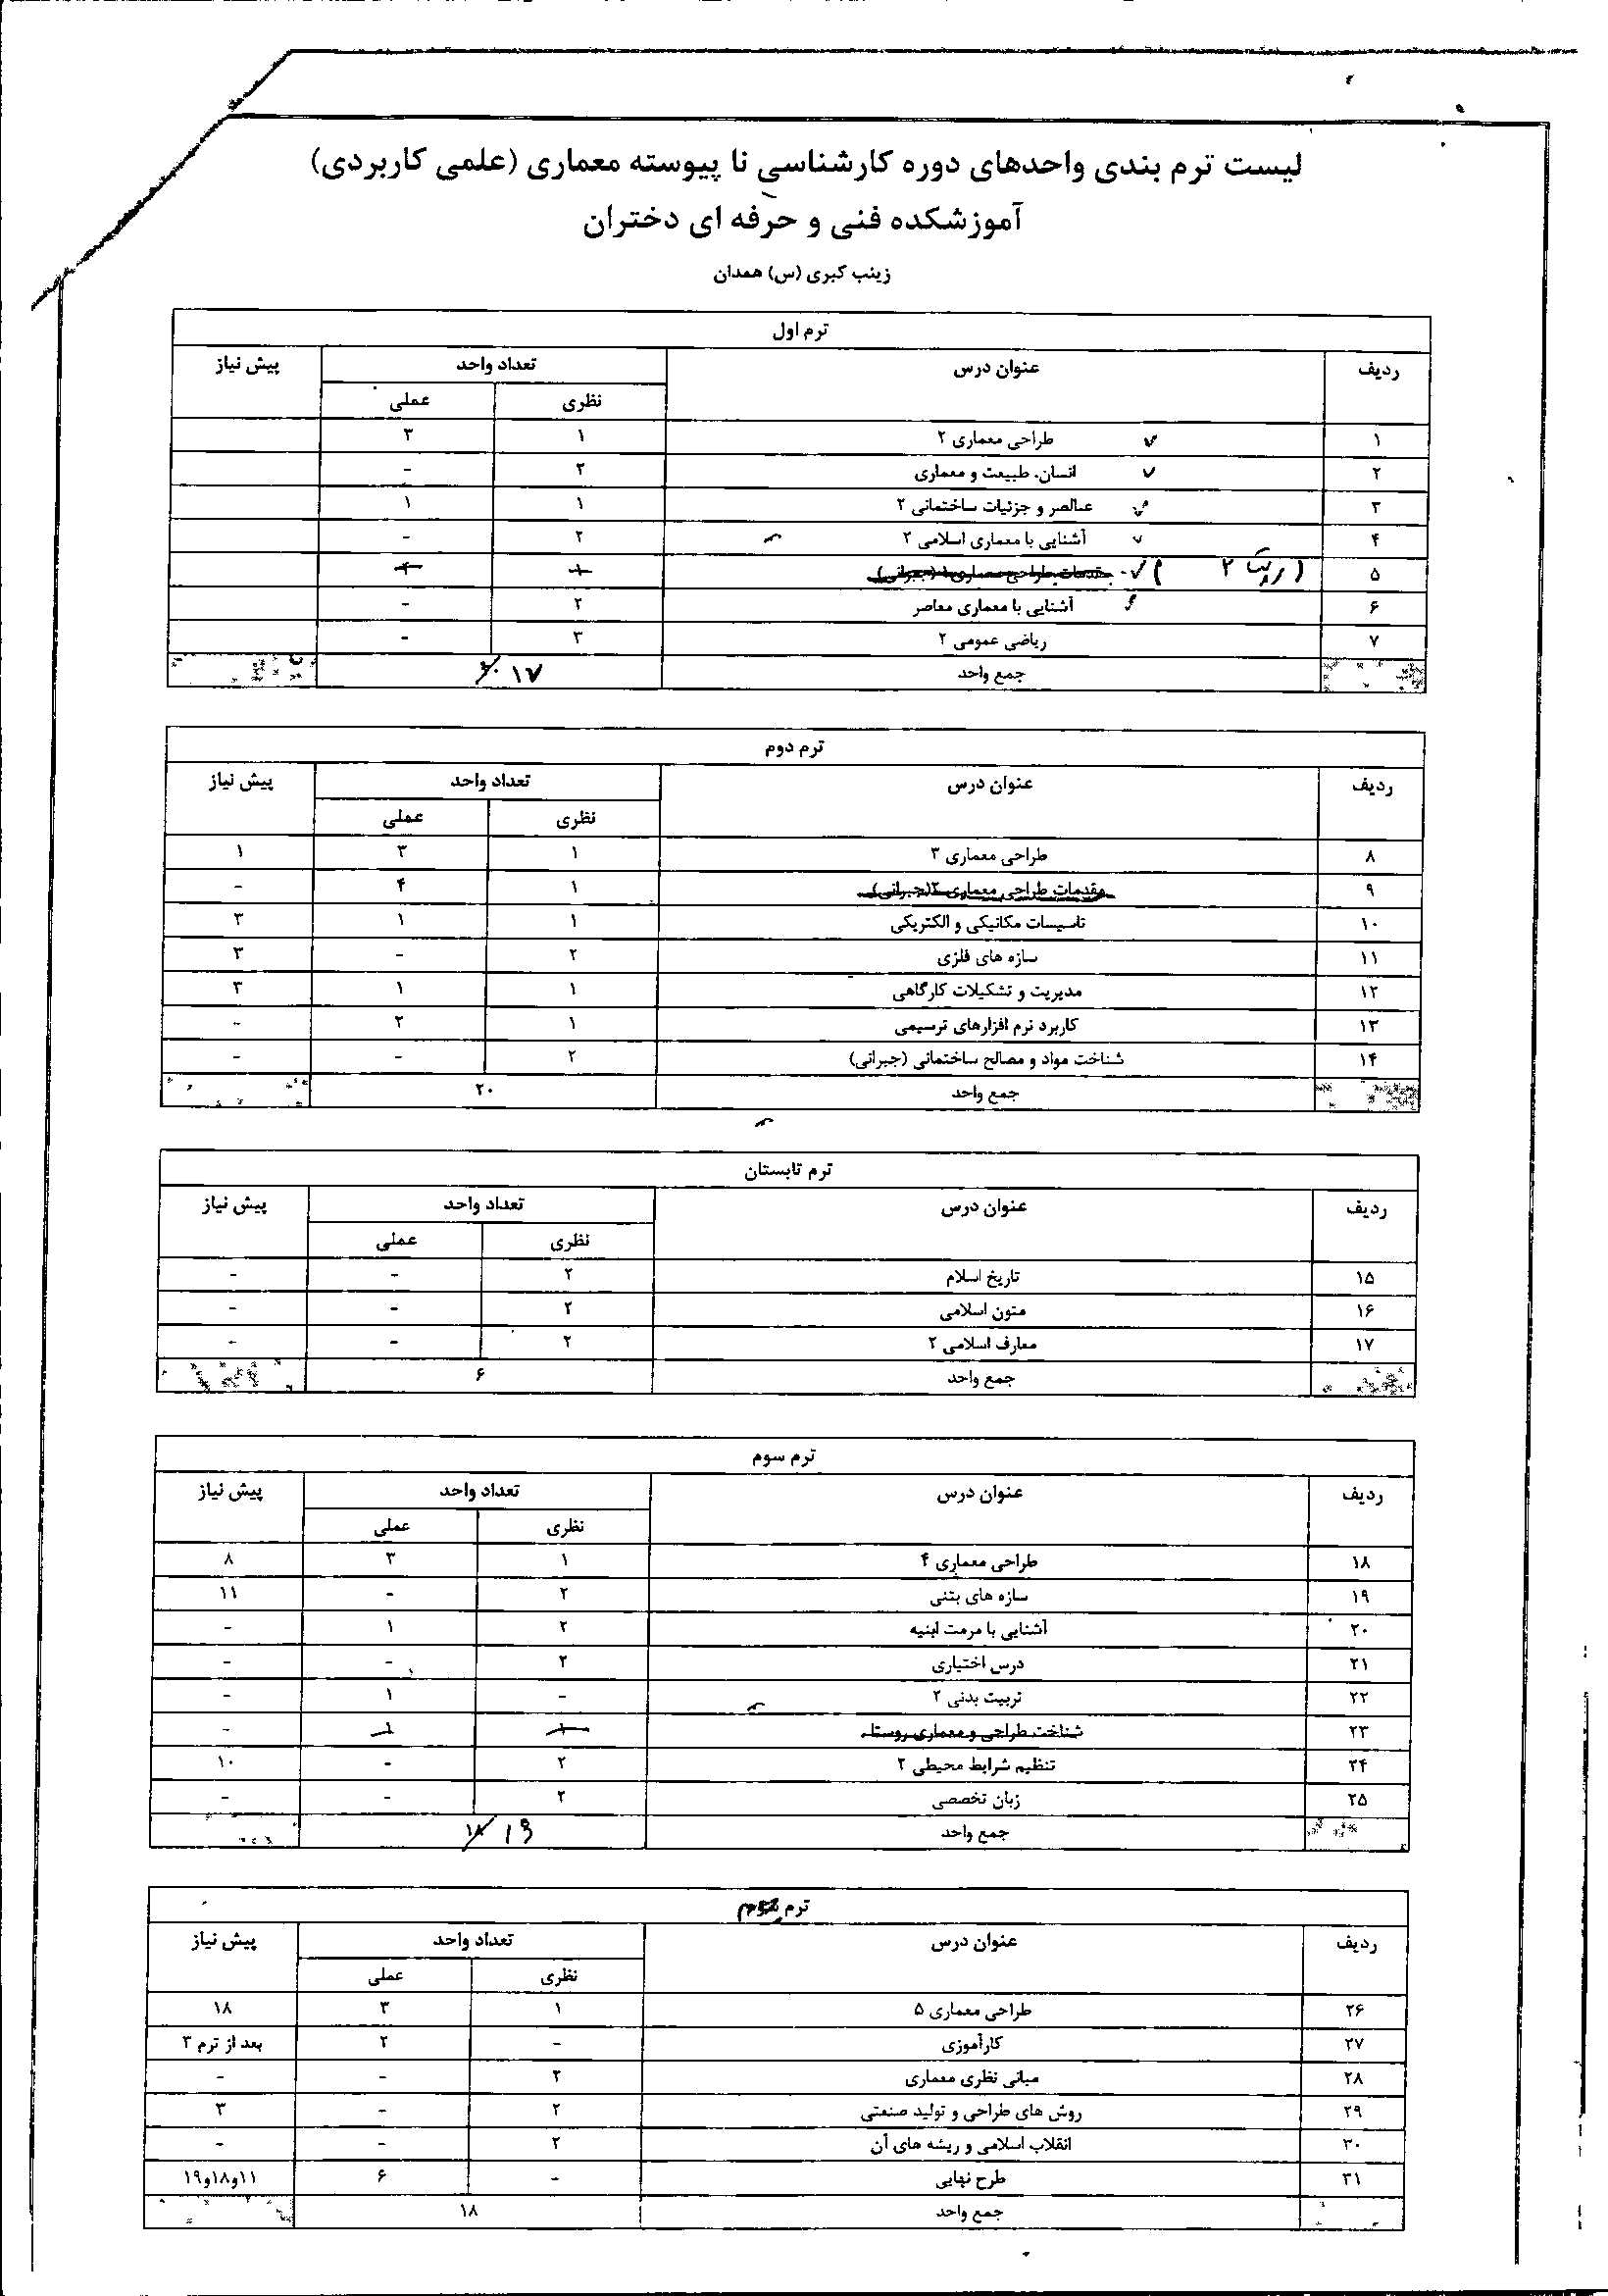 لیست ترم بندی واحدهای دوره کارشناسی نا پیوسته معماری (علمی کاربردی)
آموزشکده فنی و حرفه ای دختران
زینب کبری (س) همدان
ترم اول
ردیف عنوان درس تعداد واحد پیش نیاز
نظری عملی
۱ طراحی معماری ۲ ۱ ۳
۲ انسان، طبیعت و معماری ۲ -
۳ عناصر و جزئیات ساختمانی ۲ ۱ ۱
۴ آشنایی با معماری اسلامی ۲ ۲ -
۵ مقدمات طراحی معماری ۱ (جبرانی)
۶ آشنایی با معماری معاصر ۲ -
۷ ریاضی عمومی ۲ ۳ -
جمع واحد ۱۷
ترم دوم
ردیف عنوان درس تعداد واحد پیش نیاز
نظری عملی
۸ طراحی معماری ۳ ۱ ۳ ۱
۹ مقدمات طراحی معماری ۲ (جبرانی) ۱ ۴ -
۱۰ تاسیسات مکانیکی و الکتریکی ۱ ۱ ۳
۱۱ سازه های فلزی ۲ - ۳
۱۲ مدیریت و تشکیلات کارگاهی ۱ ۱ ۳
۱۳ کاربرد نرم افزارهای ترسیمی ۱ ۲ -
۱۴ شناخت مواد و مصالح ساختمانی (جبرانی) ۲ - -
جمع واحد ۲۰
ترم تابستان
ردیف عنوان درس تعداد واحد پیش نیاز
نظری عملی
۱۵ تاریخ اسلام ۲ - -
۱۶ متون اسلامی ۲ - -
۱۷ معارف اسلامی ۲ ۲ - -
جمع واحد ۶
ترم سوم
ردیف عنوان درس تعداد واحد پیش نیاز
نظری عملی
۱۸ طراحی معماری ۴ ۱ ۳ ۸
۱۹ سازه های بتنی ۲ - ۱۱
۲۰ آشنایی با مرمت ابنیه ۲ ۱ -
۲۱ درس اختیاری ۲ - -
۲۲ تربیت بدنی ۲ - ۱ -
۲۳ شناخت طراحی و معماری روستا ۱ ۱ -
۲۴ تنظیم شرایط محیطی ۲ ۲ - ۱۰
۲۵ زبان تخصصی ۲ - -
جمع واحد ۱۸
ترم
ردیف عنوان درس تعداد واحد پیش نیاز
نظری عملی
۲۶ طراحی معماری ۵ ۱ ۳ ۱۸
۲۷ کارآموزی - ۲ بعد از ترم ۳
۲۸ مبانی نظری معماری ۲ - -
۲۹ روش های طراحی و تولید صنعتی ۲ - ۳
۳۰ انقلاب اسلامی و ریشه های آن ۲ - -
۳۱ طرح نهایی - ۶ ۱۱و۱۸و۱۹
جمع واحد ۱۸